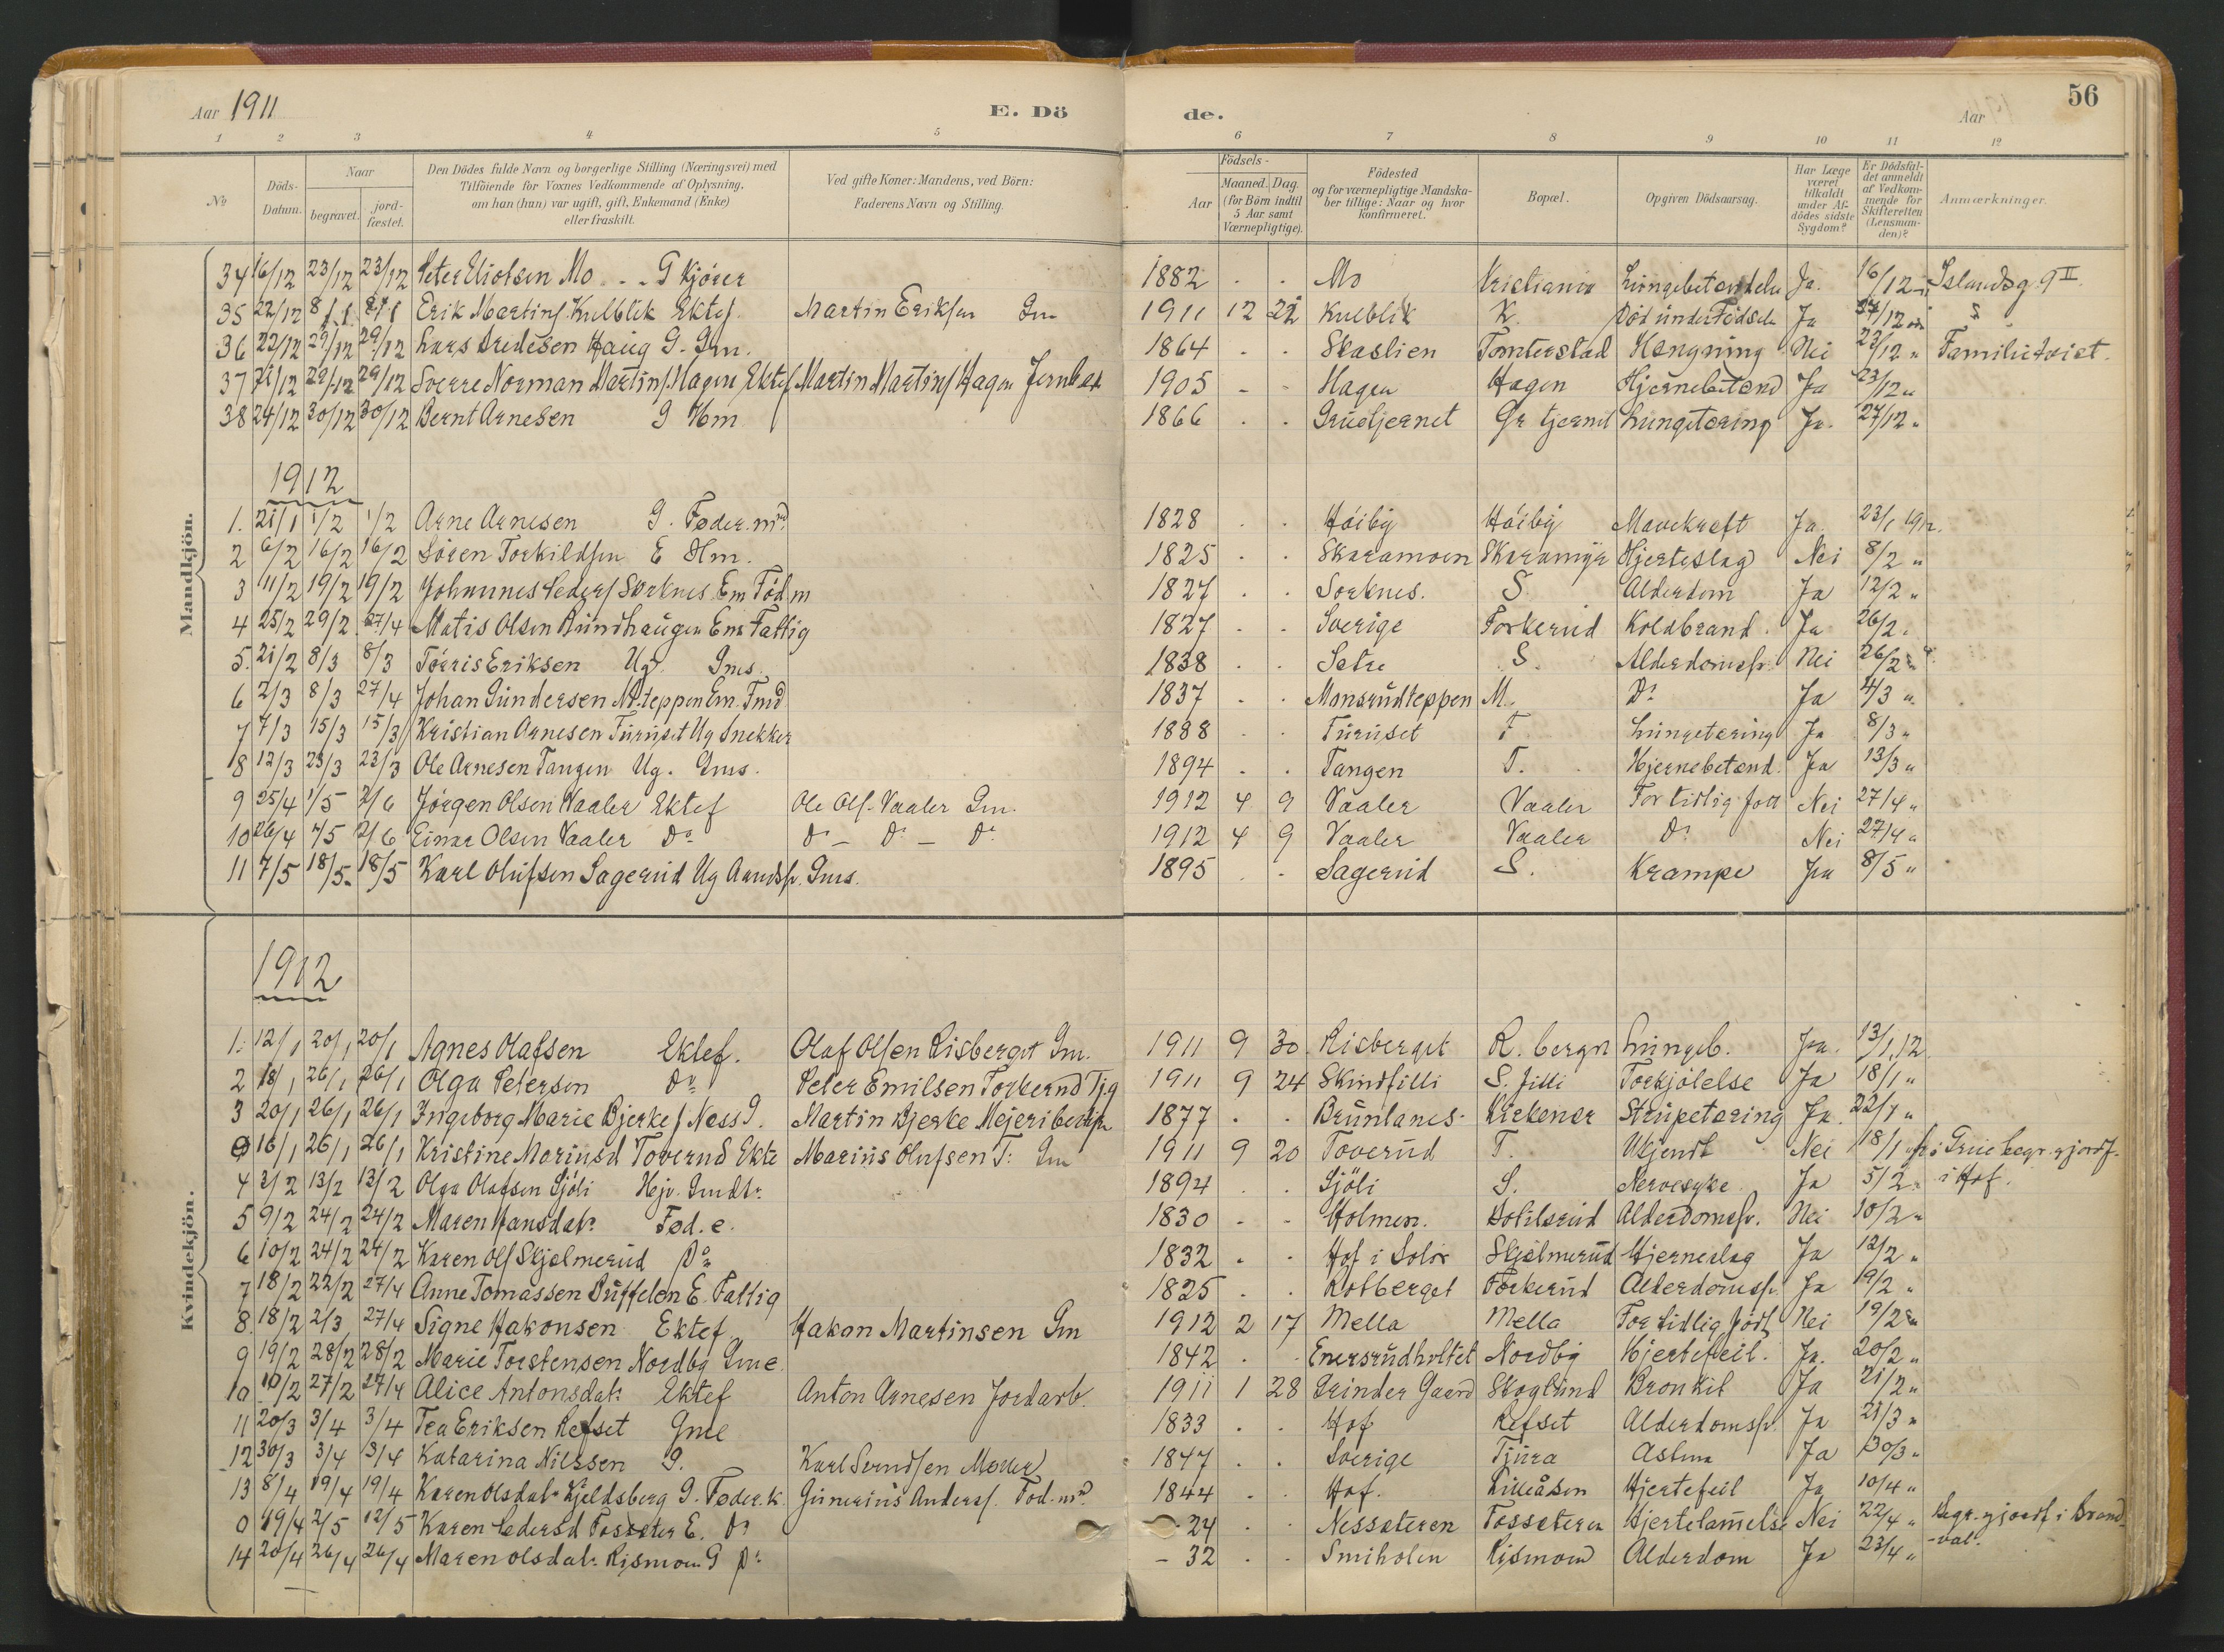 Aar 1911 E. Dö de. Aar 56
1 2 3 4 5 6 7 8 9 10 11 12
№
Döds-Datum.
Naar
begravet.
jord-fæstet.
Den Dödes fulde Navn og borgerlige Stilling (Næringsvei) med
Tilföiende for Voxnes Vedkommende af Oplysning,
om han (hun) var ugift, gift, Enkemand (Enke)
eller fraskilt.
Ved gifte Koner: Mandens, ved Börn:
Faderens Navn og Stilling.
Födsels-
Aar
Maaned. Dag.
(for Börn indtil
5 Aar samt
Værnepligtige).
Födested
og for værnepligtige Mandska-
ber tillige: Naar og hvor
konfirmeret.
Bopæl.
Opgiven Dödsaarsag.
Har Læge
været
tilkaldt
under Af-
dödes sidste
Sygdom?
Er Dödsfal-
det anmeldt
af Vedkom-
mende for
Skifteretten
(Lensman-
den)?
Anmærkninger.
Mandkjön.
34 16/12 23/12 23/12 Peter Eliotsen Mo G Kjører 1882 Mo Kristiania Lungebetændelse Ja. 16/12 Islandsg. 9 II
35 22/12 8/1 8/1 Erik Martins. Kulblik Ektef. Martin Eriksen Gm 1911 12 22 Kulblik K. Død under Fødsel Ja 27/12
36 22/12 29/12 29/12 Lars Haug G. Gm. 1864 Skaslien Tomterstad Hængning Nei 23/12 " Familietvist.
37 21/12 29/12 29/12 Sverre Norman Martins. Hagen Ektef Martin Martins. Hagen 1905 Hagen Hagen Hjernebetænd Ja 23/12 "
38 24/12 30/12 30/12 Bernt Arnesen G Hm 1866 Gruetjernet Gr tjernet Lungetæring Ja. 27/12 "
1912
1. 21/1 1/2 1/2 Arne Arnesen G. Føder.md 1828 Höiby Höiby Mavekræft Ja 23/1 1912.
2 6/2 16/2 16/2 Søren Torkildsen E Hm. 1825 Skaramoen Skaramyr Hjerteslag Nei 8/2 "
3 11/2 19/2 19/2 Johannes Peders. Sorknes Em Fød.m 1827 Sorknes. S. Alderdom Ja 12/2 "
4 25/2 29/2 27/4 Matis Olsen Bundhaugen Em Fattig 1827 Sverige Torkerud Koldbrand. Ja 26/2 "
5. 21/2 8/3 8/3 Tørris Eriksen Ug. Gms. 1838 Setre S. Alderdomssv. Nei 26/2 "
6 2/3 8/3 27/4 Johan Gundersen M.teppen Em. 1837 Monsrudteppen M. Do Ja 4/3 "
7 7/3 15/3 15/3 Kristian Arnesen Furuset Ug Snekker 1888 Furuset F. Lungetæring Ja 8/3 "
8 12/3 23/3 23/3 Ole Arnesen Tangen Ug. Gms. 1894 Tangen T. Hjernebetænd. Ja 13/3 "
9 25/4 1/5 2/6 Jørgen Olsen Vaaler Ektef Ole Ols. Vaaler Gm. 1912 4 9 Vaaler Vaaler For tidlig født Nei 27/4 "
10 26/4 1/5 2/6 Einar Olsen Vaaler Do Do – Do – Do 1912 4 9 Vaaler Vaaler Do Nei 27/4 "
11 7/5 18/5 18/5 Karl Olufsen Sagerud Ug Aandsv. Gms. 1895 Sagerud S. Krampe Ja 8/5 "
Kvindekjön.
1912
1. 12/1 20/1 20/1 Agnes Olafsen Ektef. Olaf Olsen Risberget Gm. 1911 9 30 Risberget R. berget Lungeb. Ja. 13/1.12
2 18/1 26/1 26/1 Olga Petersen Do Peter Emilsen Torkerud Tjg 1911 9 24 Skindfilli S. filli Forkjölelse Ja 18/1 "
3 20/1 26/1 26/1 Ingeborg Marie Bjerke f. Ness G. Martin Bjerke Meieribestyr 1877 Brunlanes Kirkenær Strupetæring Ja 22/1 "
0 16/1 26/1 26/1 Kristine Mariusd Toverud Ekte Marius Olufsen T. Gm 1911 9 20 Toverud T. Ukjendt Nei 18/1 i Grue begr. gjordf.
4 3/2 13/2 13/2 Olga Olafsen Sjöli Gmdtr. 1894 Sjöli S. Nervesyke Ja 5/2 " i Hof.
5 9/2 24/2 24/2 Maren Hansdatr Fød.e. 1830 Holmen. Alderdomssv. Nei 10/2 "
6 10/2 24/2 24/2 Karen Ols Skjelmerud Do 1832 Hof i Solør Skjelmerud Hjerneslag Ja 12/2 "
7 18/2 22/2 27/4 Anne Tomassen Puffelen E. Fattig 1825 Rotberget Torkerud Alderdomssv. Ja 19/2 "
8. 18/2 2/3 27/4 Signe Hakonsen Ektef Hakon Martinsen Gm 1912 2 17 Mella Mella For tidlig født Nei 19/2 "
9 19/2 28/2 28/2 Marie Torstensen Nordby Gme. 1842 Enersrudholtet Nordby Hjertefeil. Ja. 20/2 "
10 10/2 27/2 27/4 Alice Antonsdatr Ektef Anton Arnesen Jordarb. 1911 1 28 Grinder Gaard Skoglund Bronkit Ja 21/2 "
11 20/3 3/4 3/4 Tea Eriksen Refset Gme 1833 Hof Refset Alderdomssv. Ja 21/3 "
12 30/3 3/4 3/4 Katarina Nilssen G. Karl Svendsen Møller 1847 Sverige Tjura Astma Ja 30/3 "
13 8/4 19/4 19/4 Karen Olsdatr Kjeldsberg G. Føder.k. Gunerius Anders. Fød.md. 1844 Hof. Lilleåsen Hjertefeil Ja 10/4 "
0 19/4 2/5 12/5 Karen Pedersd Fossæter E. Do 24 Nessæteren Fossæteren Hjertelammelse Nei 22/4 " Begr. gjordf. i Brand-
14 20/4 26/4 26/4 Maren Olsdatr Rismoen G Do – 32 Smiholen Rismoen Alderdom Ja 23/4 " -val.